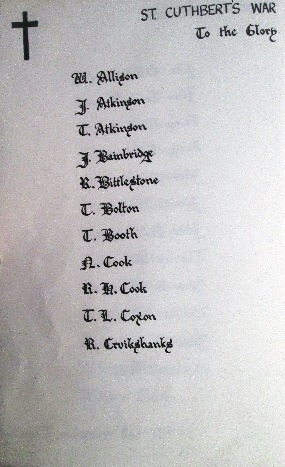 ST. CUTHBERT'S WAR
To the Glory
W. Allison
J. Atkinson
T. Atkinson
J. Bainbridge
R. Bittlestone
T. Bolton
T. Booth
N. Cook
R. H. Cook
T. L. Coxon
R. Cruikshanks